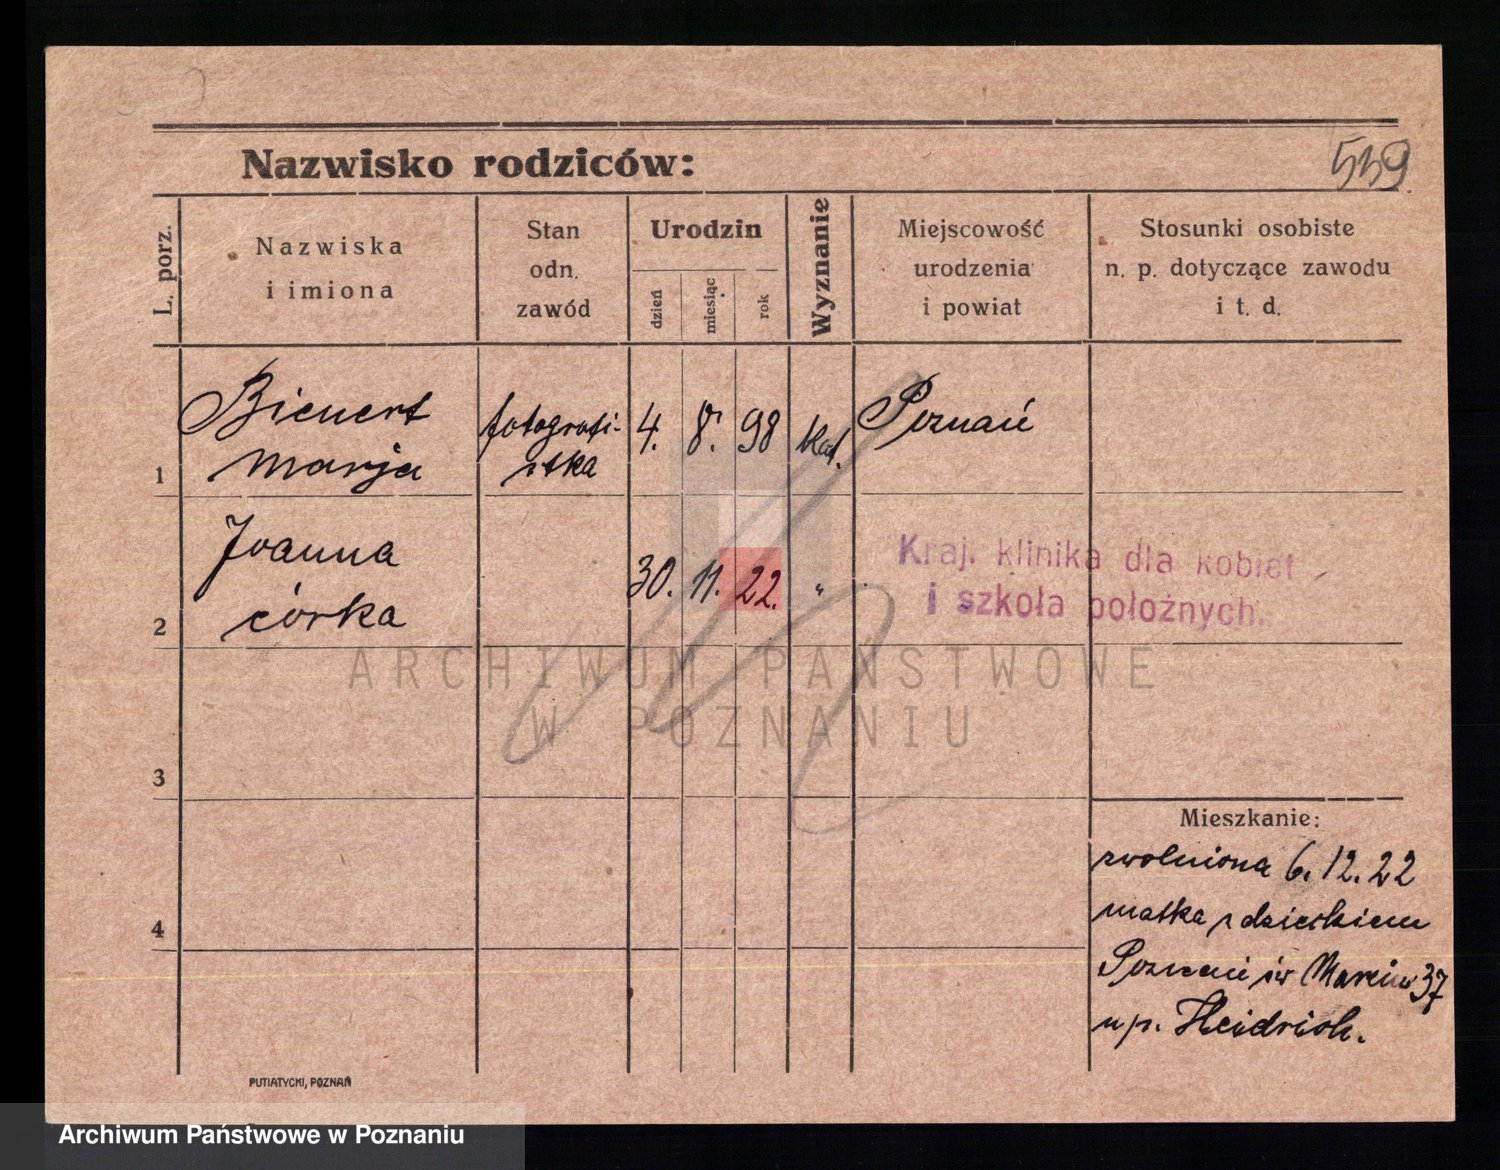 539
Nazwisko rodziców:
L. porz.
Nazwiska
i imiona
Stan
odn.
zawód
Urodzin
dzień
miesiąc
rok
Wyznanie
Miejscowość
urodzenia
i powiat
Stosunki osobiste
n. p. dotyczące zawodu
i t. d.
1
Bienert
Marja
fotografi-
stka
4. 8. 98
kat.
Poznań
2
Joanna
córka
30. 11. 22. "
Kraj. klinika dla kobiet
i szkoła położnych.
ARCHIWUM PAŃSTWOWE
W POZNANIU
3
4
Mieszkanie:
zwolniona 6. 12. 22
matka z dzieckiem
Poznań św Marcin 37
u p. Heidrich.
PUTIATYCKI, POZNAŃ
Archiwum Państwowe w Poznaniu